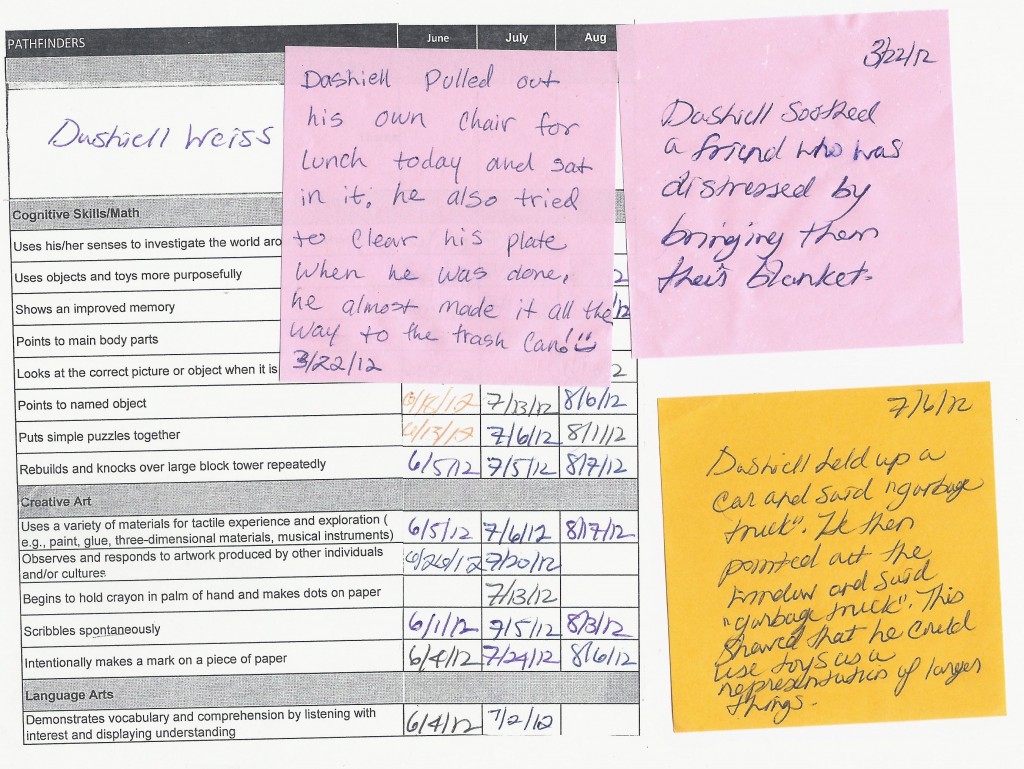 PATHFINDERS June July Aug
Dashiell Weiss
Cognitive Skills/Math
Uses his/her senses to investigate the world aro
Uses objects and toys more purposefully
Shows an improved memory
Points to main body parts
Looks at the correct picture or object when it is
Points to named object 7/13/12 8/6/12
Puts simple puzzles together 7/6/12 8/1/12
Rebuilds and knocks over large block tower repeatedly 6/5/12 7/5/12 8/7/12
Creative Art
Uses a variety of materials for tactile experience and exploration ( 6/5/12 7/6/12 8/17/12
e.g., paint, glue, three-dimensional materials, musical instruments)
Observes and responds to artwork produced by other individuals 6/26/12 7/20/12
and/or cultures
Begins to hold crayon in palm of hand and makes dots on paper 7/13/12
Scribbles spontaneously 6/1/12 7/5/12 8/3/12
Intentionally makes a mark on a piece of paper 6/4/12 7/24/12 8/6/12
Language Arts
Demonstrates vocabulary and comprehension by listening with 6/4/12 7/2/12
interest and displaying understanding
Dashiell Pulled out
his own chair for
lunch today and sat
in it, he also tried
to clear his plate
when he was done,
he almost made it all the
way to the trash can!
3/22/12
3/22/12
Dashiell soothed
a friend who was
distressed by
bringing them
their blanket.
7/6/12
Dashiell held up a
car and said "garbage
truck". He then
pointed out the
window and said
"garbage truck". This
showed that he could
use toys as a
representation of larger
things.